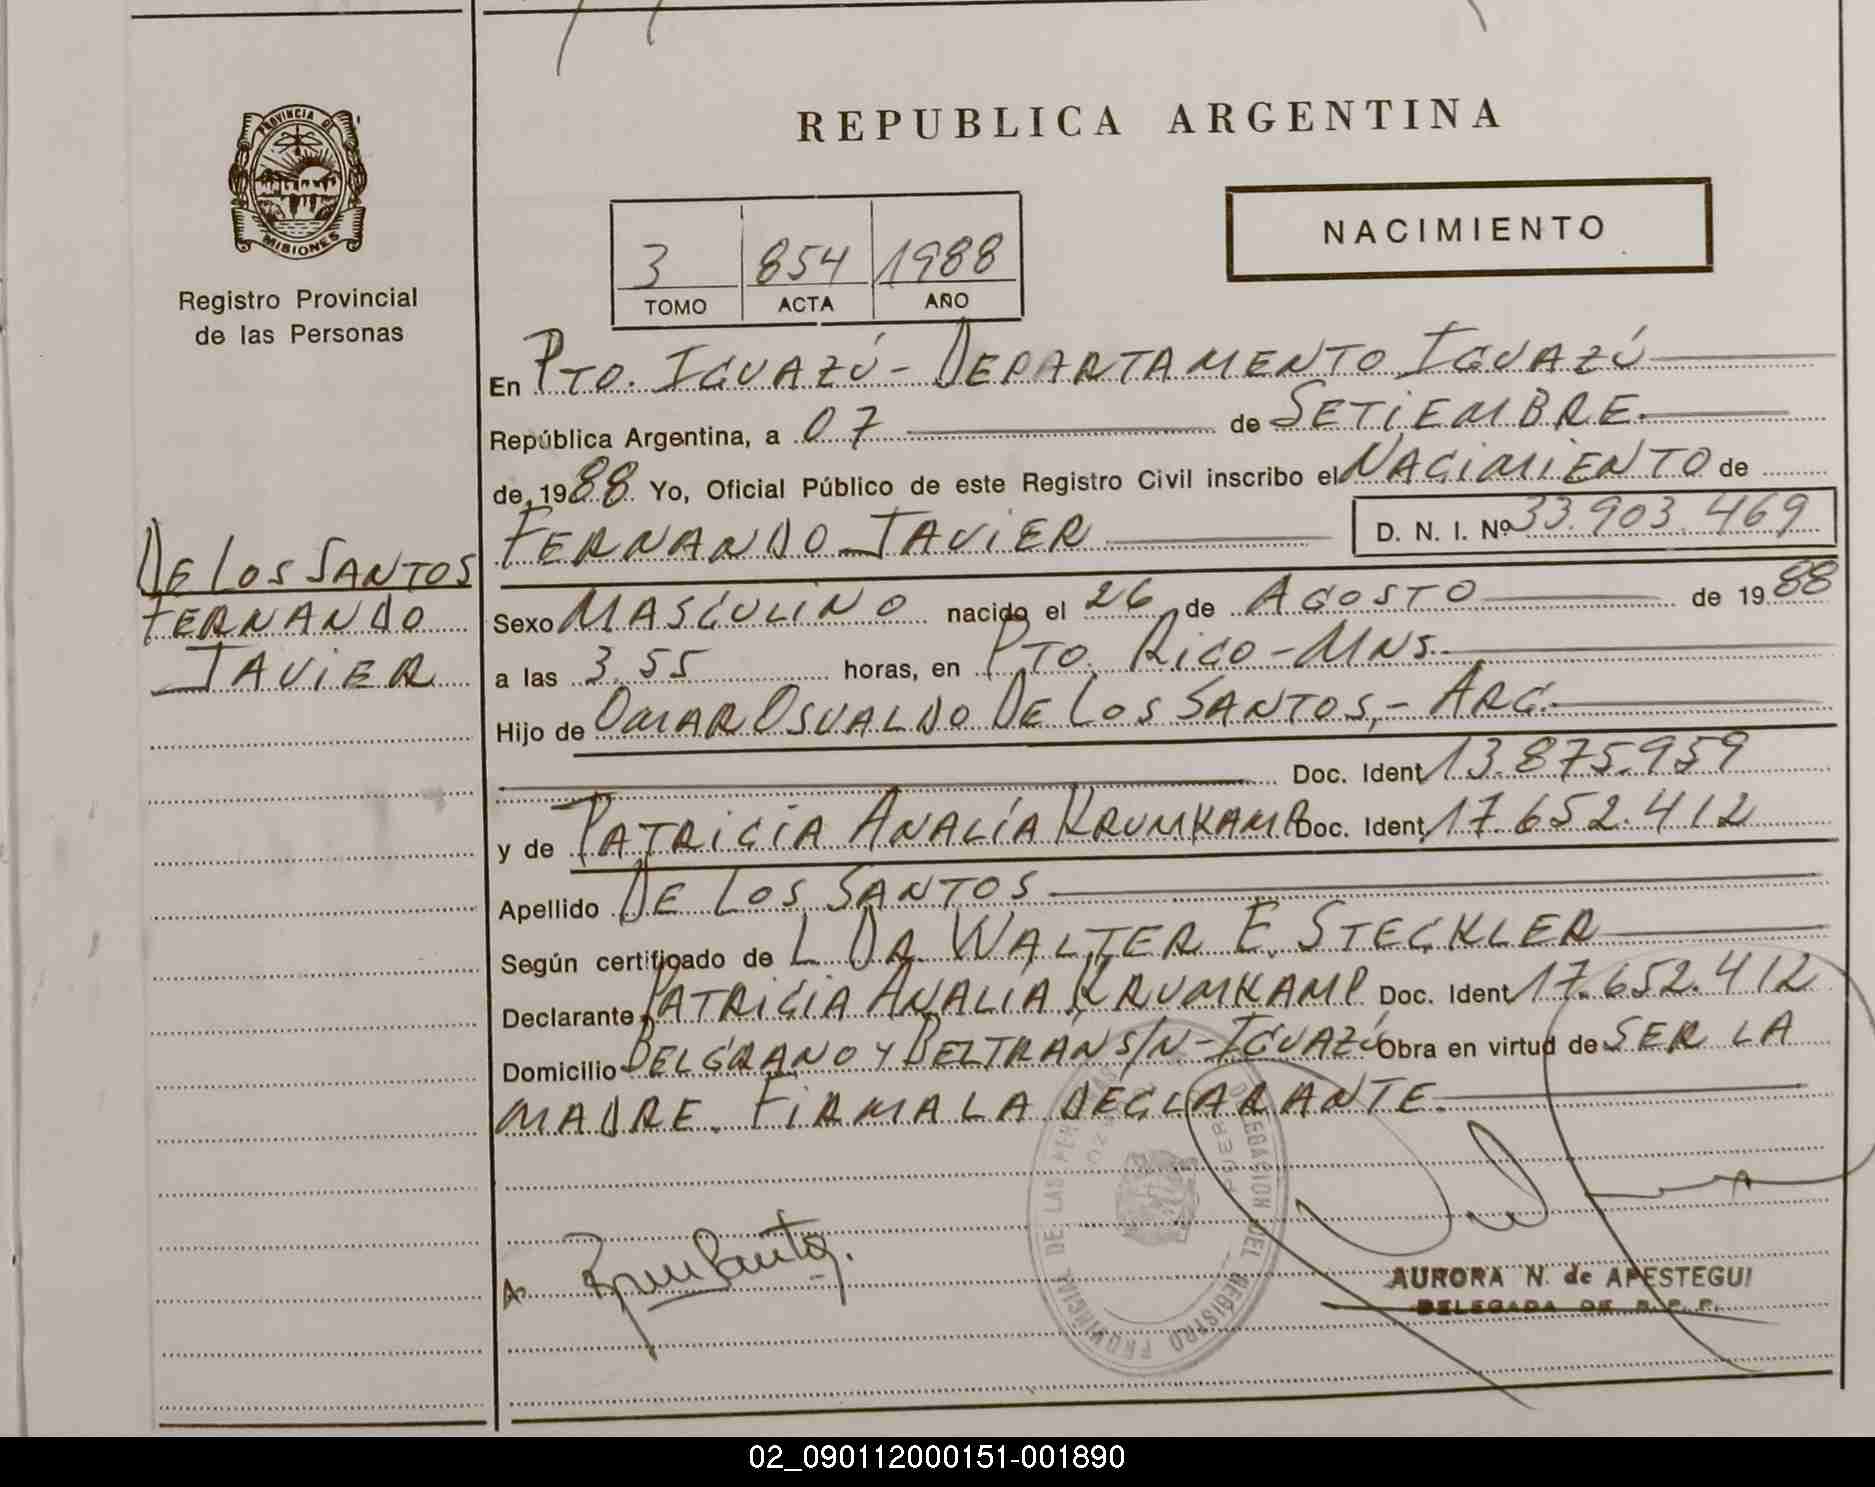 REPUBLICA ARGENTINA
PROVINCIA DE
MISIONES
Registro Provincial
de las Personas
NACIMIENTO
3 854 1988
TOMO ACTA AÑO
En PTO. IGUAZÚ - DEPARTAMENTO IGUAZÚ
República Argentina, a 07 de SETIEMBRE.
de 1988. Yo, Oficial Público de este Registro Civil inscribo el NACIMIENTO de
FERNANDO JAVIER D. N. I. Nº 33.903.469
DE LOS SANTOS
FERNANDO
JAVIER
Sexo MASCULINO nacido el 26 de AGOSTO de 1988
a las 3.55 horas, en PTO. RICO - MNS.
Hijo de OMAR OSVALDO DE LOS SANTOS, - ARG.
Doc. Ident. 13.875.959
y de PATRICIA ANALÍA KRUMKAMP Doc. Ident. 17.652.412
Apellido DE LOS SANTOS
Según certificado de L DR. WALTER E. STECKLER
Declarante PATRICIA ANALIA KRUMKAMP Doc. Ident. 17.652.412
Domicilio BELGRANO Y BELTRÁN S/N - IGUAZÚ Obra en virtud de SER LA
MADRE. FIRMA LA DECLARANTE.
DELEGACION DEL REGISTRO PROVINCIAL DE LAS
AURORA N. de APESTEGUI
DELEGADA DE R. P. P.
02_090112000151-001890